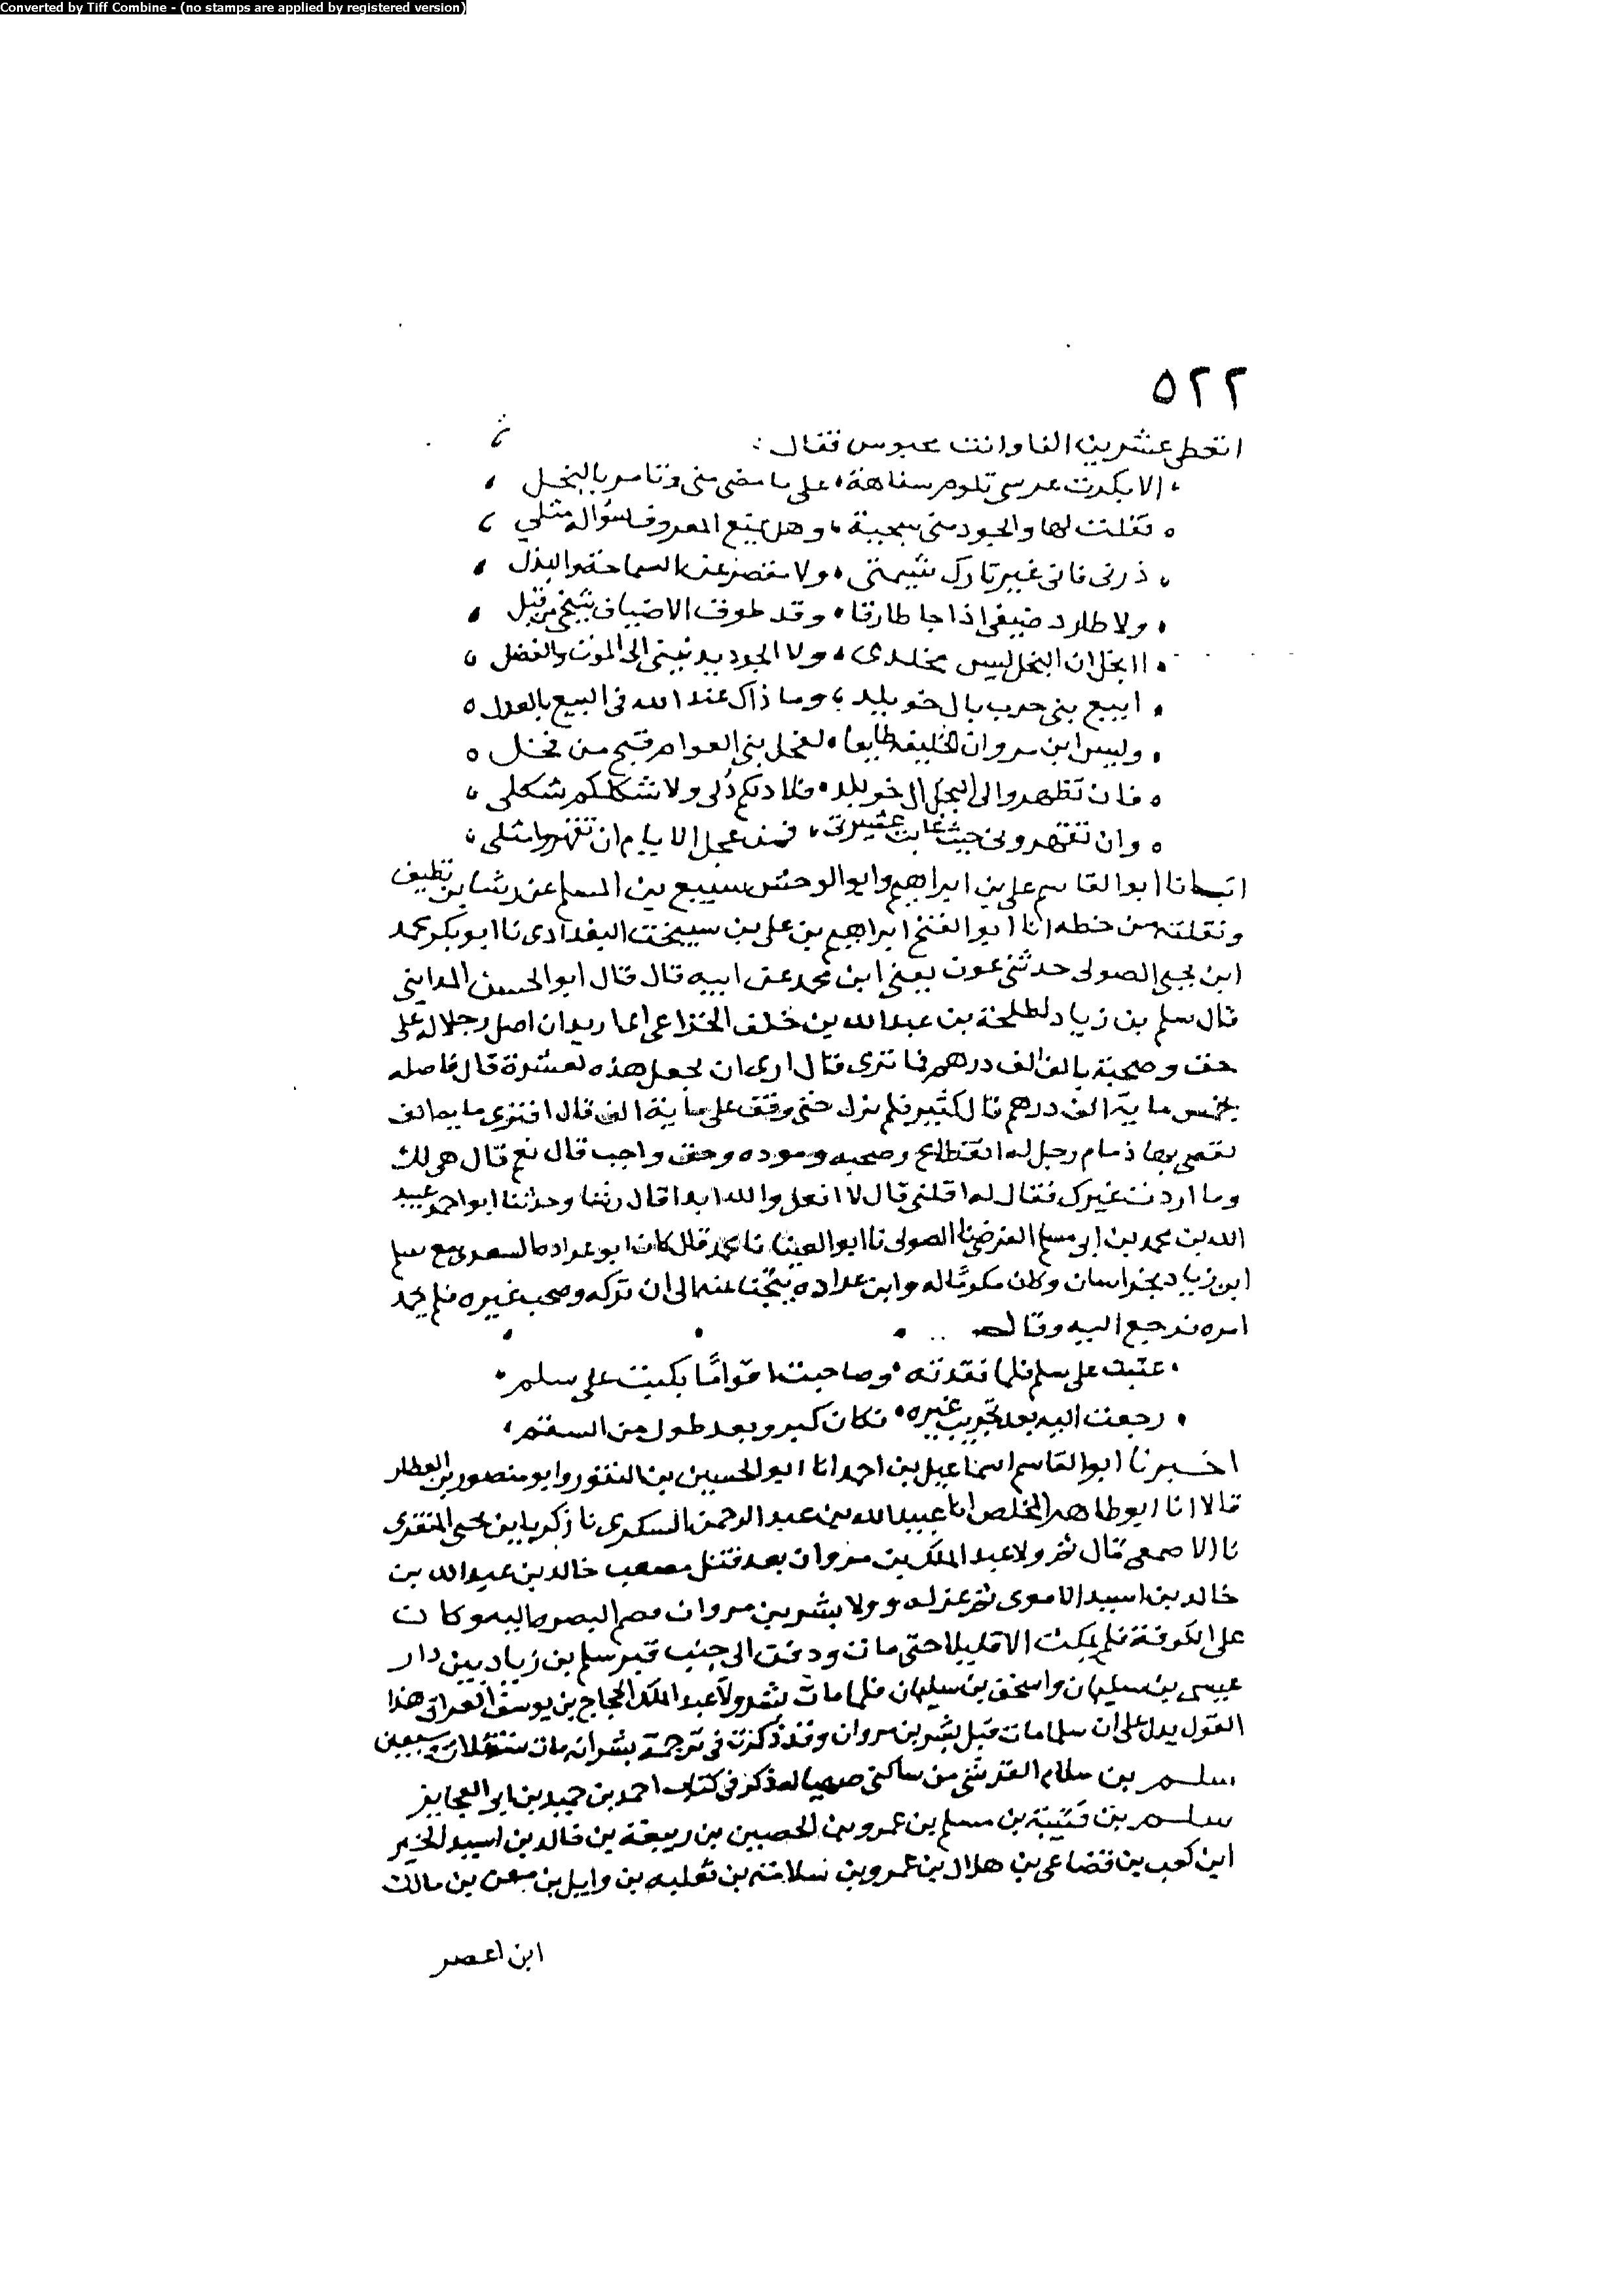 Converted by Tiff Combine - (no stamps are applied by registered version)
٥٢٢
اتعطى عشرين الفا وانت محبوس فقال :
الا بكرت عرسى تلوم سفاهة على ما مضى منى وتامر بالبخل
فقلت لها والجود منى سجية وهل يمنع المعروف سواله مثلي
ذرنى فانى غير تارك شيمتى ولا مقصر عن السماحة والبذل
ولا طارد ضيفى اذا جا طارقا وقد طوف الاضياف شيخى من قبل
اابخل ان البخل ليس بمخلدى ولا الجود يدنينى الى الموت والفضل
ابيع بنى حرب بال خويلد وما ذاك عند الله فى البيع بالعدل
وليس ابن مروان الخليفة طايعا لفحل بنى العوام قبح من فحل
فان تظهروا لى البخل ال خويلد فلا دلكم دلى ولا شكلكم شكلى
وان تقهرونى حيث غابت عشيرتى فمن عجل الايام ان تقهروا مثلى
انبانا ابوالقاسم على بن ابراهيم وابو الوحش سبيع بن المسلم عن رشا بن نظيف
ونقلته من خطه انا ابو الفتح ابراهيم بن على بن سيبخت البغدادى نا ابو بكر محمد
ابن يحيى الصولى حدثنى عون يعنى ابن محمد عن ابيه قال قال ابو الحسن المداينى
قال سلم بن زياد لطلحة بن عبد الله بن خلف الخزاعى انما اريد ان اصل رجلا له على
حق وصحبة بالف الف درهم فما ترى قال ارى ان تجعل هذه لعشرة قال فاصله
بخمس ماية الف درهم قال كثير فلم يزل حتى وقف على ماية الف قال افترى ماية الف
نقضى بها ذمام رجل له انقطاع وصحبه ومودة وحق واجب قال نعم قال هى لك
وما اردت غيرك فقال له اقلنى قال لا افعل والله ابدا قال رشا وحدثنا ابو احمد عبيد
الله بن محمد بن ابى مسلم الفرضى نا الصولى نا ابو العينا نا محمد قال كان ابو عراده السعدى مع سلم
ابن زياد بخراسان وكان مكرما له وابن عراده يتجنا عنه الى ان تركه وصحب غيره فلم يحمد
امره فرجع اليه وقال
عتبت على سلم فلما فقدته وصاحبت اقواما بكيت على سلم
رجعت اليه بعد تجريب غيره فكان كبرو بعد طول من السقم
اخبرنا ابو القاسم اسماعيل بن احمد انا ابو الحسين بن النقور وابو منصور بن العطار
قالا انا ابو طاهر المخلص انا عبيد الله بن عبد الرحمن السكرى نا زكريا بن يحيى المنقرى
نا الاصمعى قال ثم ولا عبد الملك بن مروان بعد قتل مصعب خالد بن عبد الله بن
خالد بن اسيد الاموى ثم عزله وولا بشر بن مروان فضم البصره اليه وكان
على الكوفة فلم يمكث الا قليلا حتى مات ودفن الى جنب قبر سلم بن زياد بين دار
عيسى بن سليمان واسحق بن سليمان فلما مات بشر ولا عبد الملك الحجاج بن يوسف العراق هذا
القول يدل على ان سلما مات قبل بشر بن مروان وقد ذكرت فى ترجمة بشر انه مات سنة ثلاث وسبعين
سلم بن سلام القرشى من ساكنى صهيا له ذكر فى كتاب احمد بن حميد بن ابى العجايز
سلم بن قتيبة بن مسلم بن عمرو بن الحصين بن ربيعة بن خالد بن اسيد الخير
ابن كعب بن قضاعى بن هلال بن عمرو بن سلامة بن ثعلبه بن وايل بن معن بن مالك
ابن اعصر